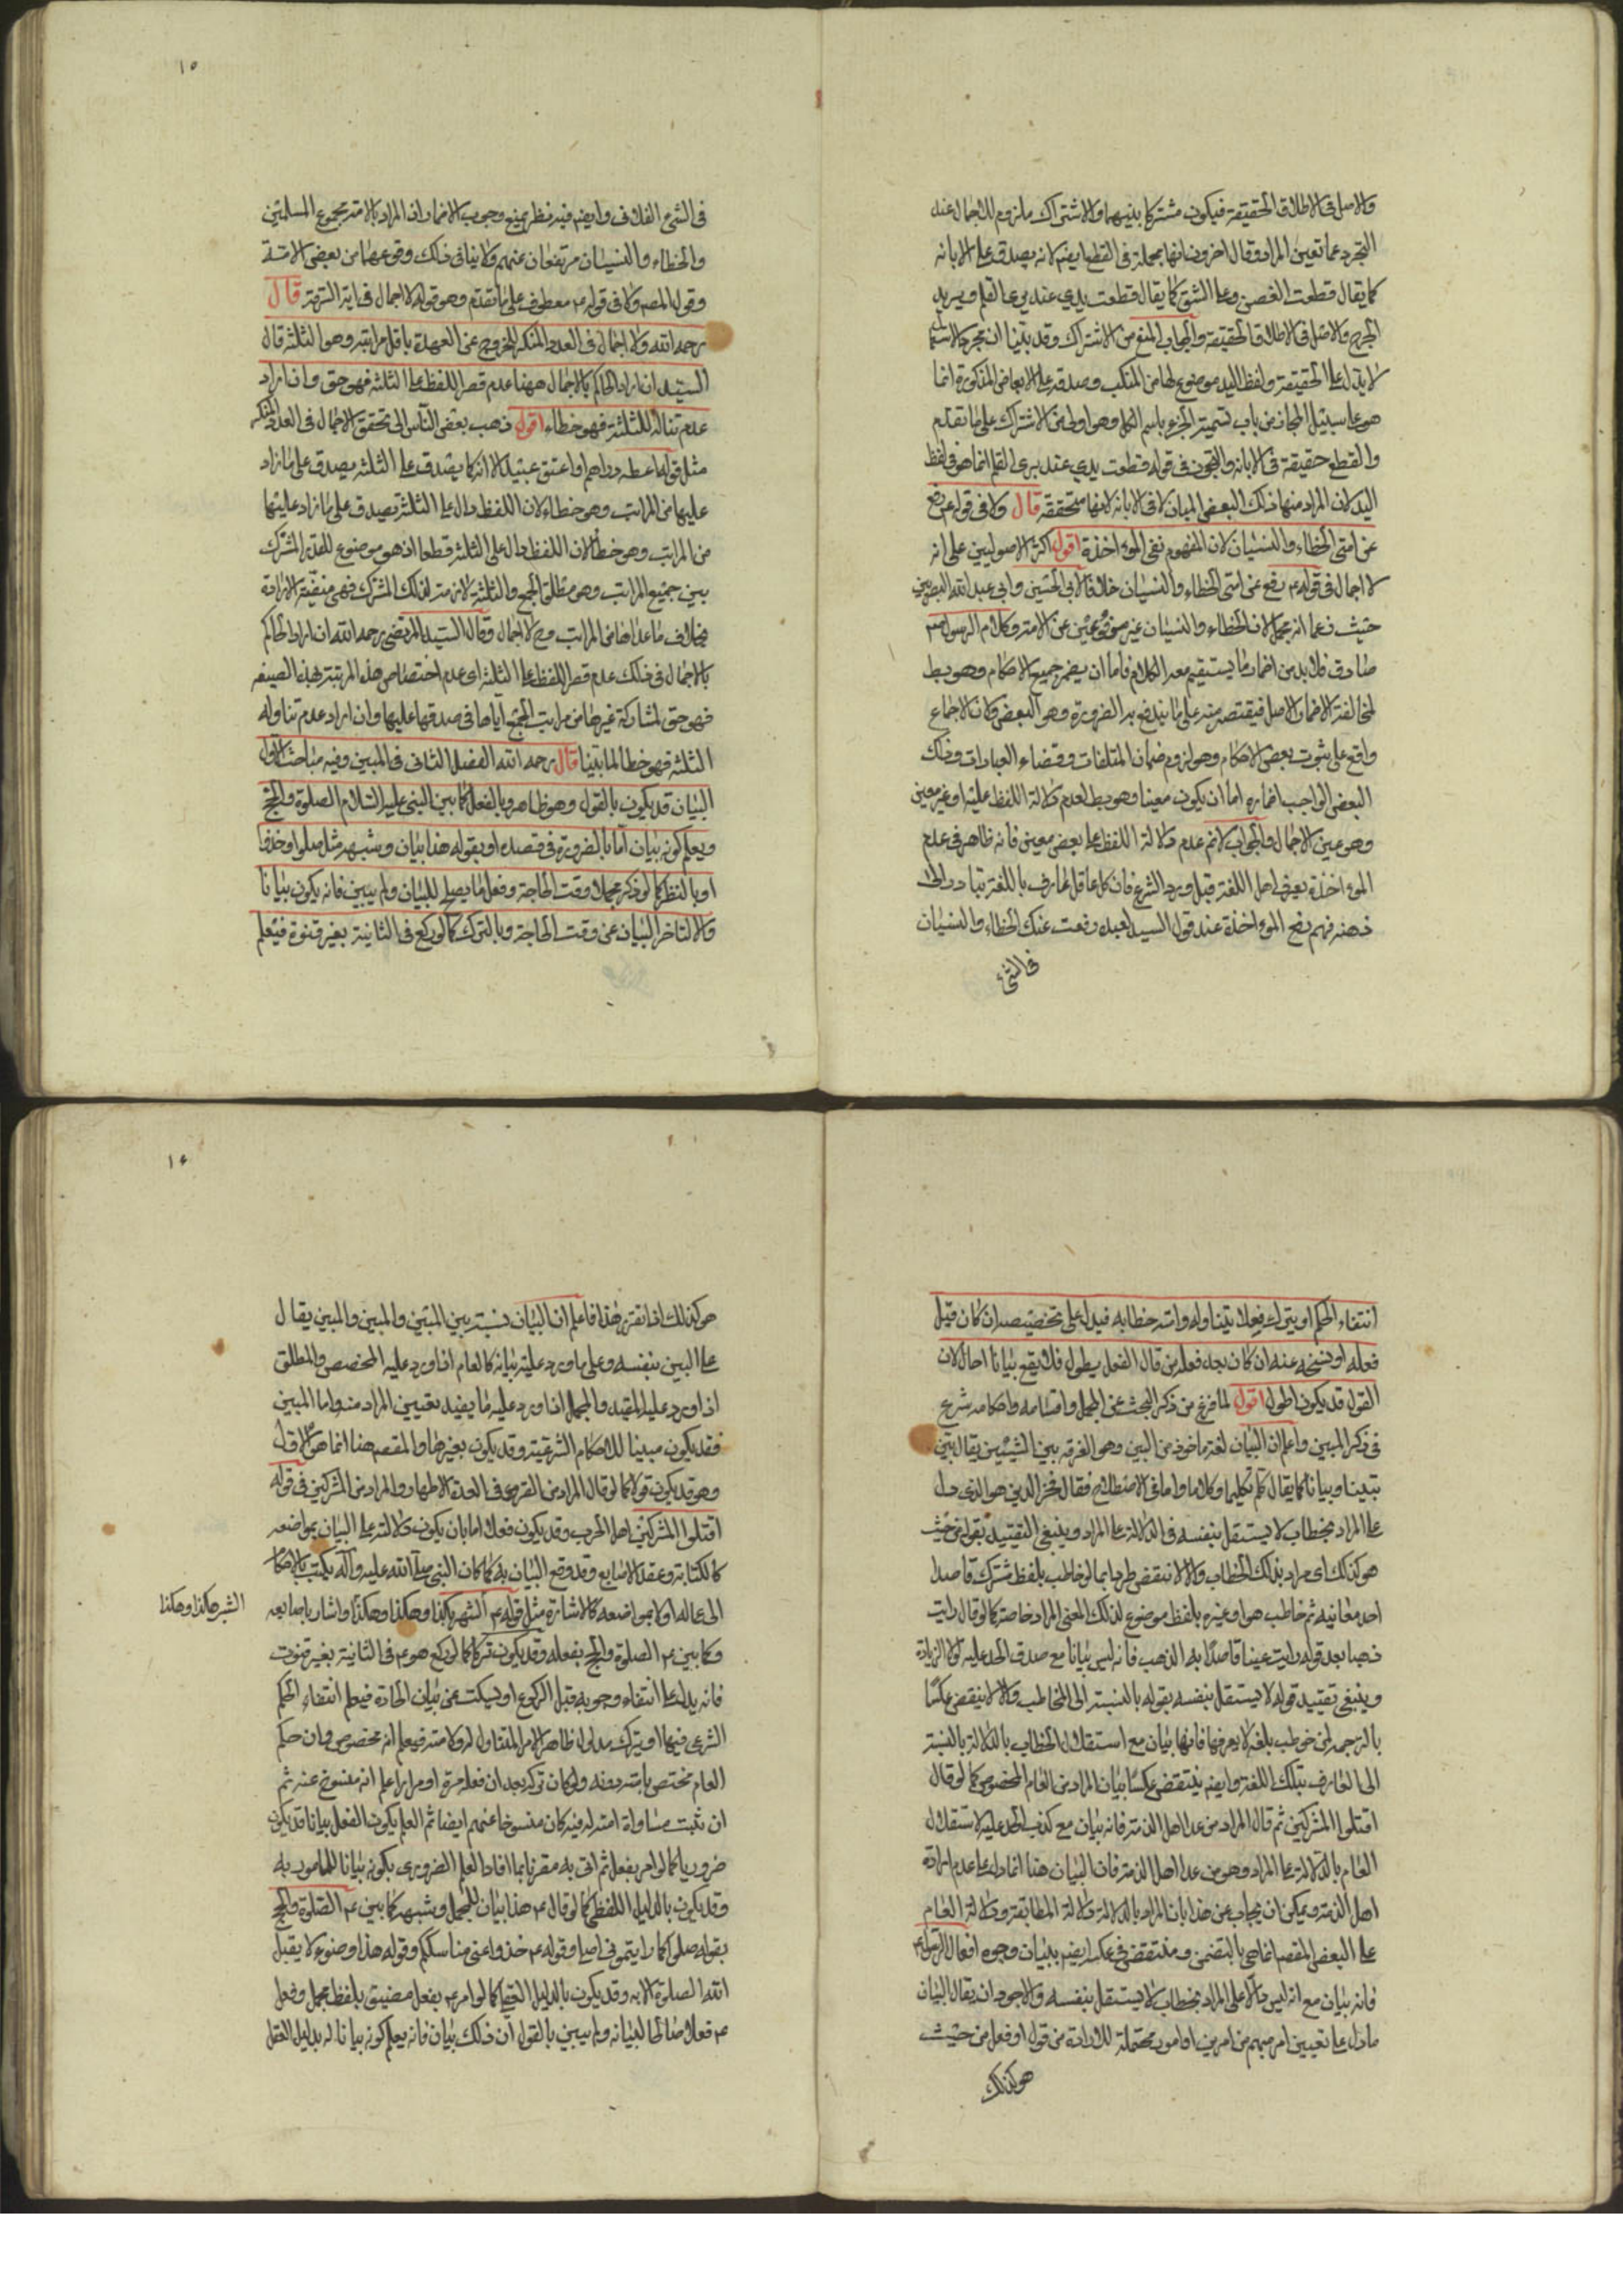 والاصل فى الاطلاق الحقيقة فيكون مشتركا بينهما والاشتراك ملزوم للاجمال عند
التجرد عما تعين المراد وقال اخرون انها مجملة فى القطع ايضا لانه يصدق على الابانة
كما يقال قطعت الغصن وعلى الشق كما يقال قطعت يدى عند برى القلم ويريد
الجرح والاصل فى الاطلاق الحقيقة والجواب المنع من الاشتراك وقد بينا ان مجرد الاستعمال
لا يدل على الحقيقة ولفظ اليد موضوع لها من المنكب وصدقه على الابعاض المذكورة انما
هو على سبيل المجاز من باب تسمية الجزو باسم الكل وهو اولى من الاشتراك على ما تقدم
والقطع حقيقة فى الابانة والتجوز فى قوله قطعت يدى عند برى القلم انما هو فى لفظ
اليد لان المراد منها ذلك البعض المبان لا فى الابانة لانها متحققة قال ولا فى قوله ع رفع
عن امتى الخطاء والنسيان لان المفهوم نفى المواخذة اقول اكثر الاصوليين على انه
لا اجمال فى قوله ع رفع عن امتى الخطاء والنسيان خلافا لابى الحسين وابى عبد الله البصريين
حيث زعما انه مجمل لان الخطاء والنسيان غير مرفوعين عن الامة وكلام الرسول ص
صادق فلا بد من اضمار ما يستقيم معه الكلام فاما ان يضمر جميع الاحكام وهو بط
لمخالفة الاضمار الاصل فيقتصر منه على ما يندفع به الضرورة وهو البعض ولان الاجماع
واقع على ثبوت بعض الاحكام وهو لزوم ضمان المتلفات وقضاء العبادات وذلك
البعض الواجب اضماره اما ان يكون معينا وهو بط لعدم دلالة اللفظ عليه او غير معين
وهو عين الاجمال والجواب لانم عدم دلالة اللفظ على بعض معين فانه ظاهر فى عدم
المواخذة بعرف اهل اللغة قبل ورود الشرع فان كل عاقل عارف باللغة يتبادر الى
ذهنه فهم رفع المواخذة عند قول السيد لعبده رفعت عنك الخطاء والنسيان
فى الشئ
١٥
فى الشئ الفلانى وايضا فيه نظر يمنع وجوب الاضمار اذ المراد بالامة مجموع المسلمين
والخطاء والنسيان مرتفعان عنهم ولا ينافى ذلك وقوعهما من بعض الامة
وقول المصر ولا فى قوله ع معطوف على ما تقدم وهو قوله لا اجمال فى اية السرقة قال
رحمه الله ولا اجمال فى العدد المنكر للخروج عن العهدة باقل مراتبه وهو الثلثة قال
السيد ان اراد الحاكم بالاجمال ههنا عدم قصر اللفظ على الثلثة فهو حق وان اراد
عدم تناوله للثلثة فهو خطاء اقول ذهب بعض الناس الى تحقق الاجمال فى العدد المنكر
مثل قوله اعطه دراهم او اعتق عبيدا لانه كما يصدق على الثلثة يصدق على ما زاد
عليها من المراتب وهو خطاء لان اللفظ دال على الثلثة يصدق على ما زاد عليها
من المراتب وهو خطأ لان اللفظ دال على الثلثة قطعا اذ هو موضوع للقدر المشترك
بين جميع المراتب وهو مطلق الجمع والثلثة لازمة لذلك المشترك فهى متيقنة الارادة
بخلاف ما عداها من المراتب وح لا اجمال وقال السيد المرتضى رحمه الله ان اراد الحاكم
بالاجمال فى ذلك عدم قصر اللفظ على الثلثة اى عدم اختصاص هذه المرتبة بهذه الصيغة
فهو حق لمشاركة غيرها من مراتب الجمع اياها فى صدقها عليها وان اراد عدم تناوله
الثلثة فهو خطا لما بينا قال رحمه الله الفصل الثانى فى المبين وفيه مباحث الاول
البيان قد يكون بالقول وهو ظاهر وبالفعل كما بين النبى عليه السلام الصلوة والحج
ويعلم كونه بيانا اما بالضرورة فى قصده او بقوله هذا بيان وشبهه مثل صلوا وخذوا
او بالنظر كما لو ذكر مجملا وقت الحاجة وفعل ما يصلح للبيان ولم يبين فانه يكون بيانا
والا لتاخر البيان عن وقت الحاجة وبالترك كما لو ركع فى الثانية بغير قنوة فيعلم
انتفاء الحكم او يترك فعلا يتناوله وامته خطابه فيدل على تخصيصه ان كان قبل
فعله او نسخه عنه ان كان بعد فعله من قال الفعل يطول فلا يقع بيانا احال لان
القول قد يكون اطول اقول لما فرغ من ذكر البحث عن المجمل واقسامه واحكامه شرع
فى ذكر المبين واعلم ان البيان لغة ماخوذ من البين وهو الفرقة بين الشيئين يقال بين
تبيينا وبيانا كما يقال كلم تكليما وكلاما واما فى الاصطلاح فقال فخر الدين هو الذى دل
على المراد بخطاب لا يستقل بنفسه فى الدلالة على المراد وينبغى التقييد بقولنا من حيث
هو كذلك اى مراد بذلك الخطاب والا لانتقض طردا بما لو خاطب بلفظ مشترك قاصدا
احد معانيه ثم خاطب هو او غيره بلفظ موضوع لذلك المعنى المراد خاصة كما لو قال رايت
ذهبا بعد قوله رايت عينا قاصدا به الذهب فانه ليس بيانا مع صدق الحد عليه لولا الزيادة
وينبغى تقييد قوله لا يستقل بنفسه بقوله بالنسبة الى المخاطب والا لانتقض عكسا
بالترجمة لمن خوطب بلغة لا يعرفها فانها بيان مع استقلال الخطاب بالدلالة بالنسبة
الى العارف بتلك اللغة وايضا ينتقض عكسا ببيان المراد من العام المخصوص كما لو قال
اقتلوا المشركين ثم قال المراد من عدا اهل الذمة فانه بيان مع كذب الحد عليه لاستقلال
العام بالدلالة على المراد وهو من عدا اهل الذمة فان البيان هنا انما دل على عدم ارادة
اهل الذمة ويمكن ان يجاب عن هذا بان المراد بالدلالة دلالة المطابقة ودلالة العام
على البعض المقصر انما هى بالتضمن ومنتقض فى عكسه ايضا ببيان وجوه افعال الرسول ع
فانه بيان مع انه ليس دالا على المراد بخطاب لا يستقل بنفسه والاجود ان يقال البيان
ما دل على تعيين امر مبهم من امرين او امور محتملة للارادة من قول او فعل من حيث
هو كذلك
١٦
هو كذلك اذا تقرر هذا فاعلم ان البيان نسبة بين المبين والمبين والمبين يقال
على البين بنفسه وعلى ما ورد عليه بيانه كالعام اذا ورد عليه المخصص والمطلق
اذا ورد عليه المقيد والمجمل اذا ورد عليه ما يفيد تعيين المراد منه واما المبين
فقد يكون مبينا للاحكام الشرعية وقد يكون بغيرها والمقصر هنا انما هو الاول
وهو قد يكون قولا كما لو قال المراد من القروء فى العدة الاطهار والمراد من المشركين فى قوله
اقتلوا المشركين اهل الحرب وقد يكون فعلا اما بان يكون دلالته على البيان بمواضعه
كالكتابة وعقد الاصابع وقد وقع البيان به كما كان النبى صلى الله عليه وآله يكتب بالاحكام
الى عماله او لا بمواضعه كالاشارة مثل قوله ع الشهر هكذا وهكذا وهكذا واشار باصابعه
الشهر هكذا وهكذا
وكما بين ع الصلوة والحج بفعله وقد يكون تركا كما لو ركع هو ع فى الثانية بغير قنوت
فانه يدل على انتفاء وجوبه قبل الركوع او يسكت عن بيان الحادثة فيعلم انتفاء الحكم
الشرعى فيها او يترك مدلول ظاهر الامر المتناول له ولامته فيعلم انه مخصوص وان حكم
العام مختص بامته دونه وان كان تركه بعد ان فعله مرة او مرارا علم انه منسوخ عنه ثم
ان ثبت مساواة امته له فيه كان منسوخا عنهم ايضا ثم العلم بكون الفعل بيانا قد يكون
ضروريا كما لو امر بفعل ثم اتى به مقرنا بما افاد العلم الضرورى بكونه بيانا للمامور به
وقد يكون بالدليل اللفظى كما لو قال ع هذا بيان للمجمل وشبهه كما بين ع الصلوة والحج
بقوله صلوا كما رايتمونى اصلى وقوله ع خذوا عنى مناسككم وقوله هذا وضوء لا يقبل
الله الصلوة الا به وقد يكون بالدليل العقلى كما لو امر ع بفعل مضيق بلفظ مجمل وفعل
ع فعلا صالحا لبيانه ولم يبين بالقول ان ذلك بيان فانه يعلم كونه بيانا له بدليل العقل